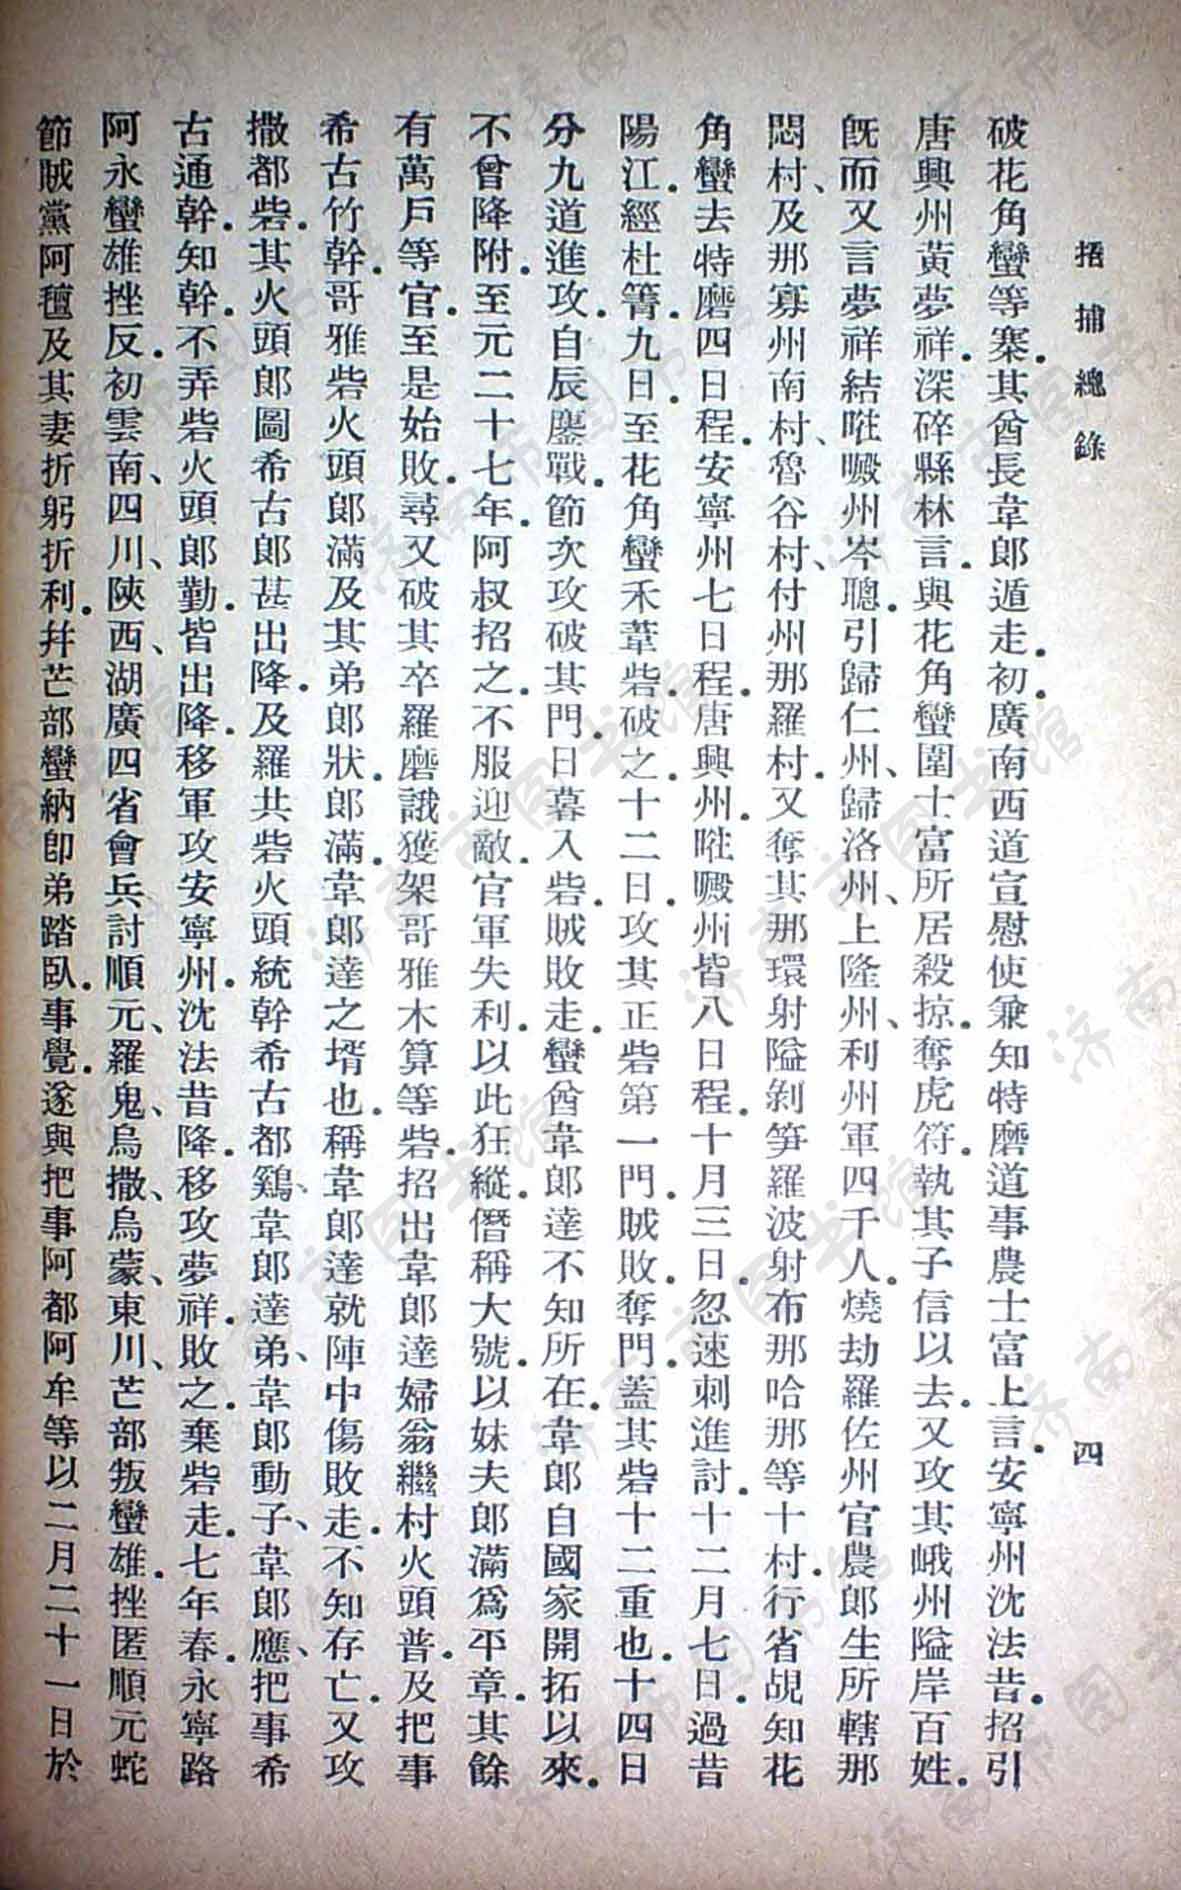 招捕總錄
四
破花角蠻等寨。其酋長韋郎遁走。初。廣南西道宣慰使兼知特磨道事農士富上言。安寧州沈法昔。招引
唐興州黃夢祥。深碎縣林言。與花角蠻圍士富所居殺掠。奪虎符。執其子信以去。又攻其峨州隘岸百姓。
既而又言夢祥結暀㬭州岑聰。引歸仁州、歸洛州、上隆州、利州軍四千人。燒劫羅佐州官農郎生所轄那
悶村、及那寡州南村、魯谷村、付州那羅村。又奪其那環射隘剝笋羅波射布那哈那等十村。行省覘知花
角蠻去特磨四日程。安寧州七日程。唐興州。暀㬭州皆八日程。十月三日。忽速剌進討。十二月七日。過昔
陽江。經杜箐。九日。至花角蠻禾葦砦。破之。十二日。攻其正砦第一門。賊敗。奪門。蓋其砦十二重也。十四日
分九道進攻。自辰鏖戰。節次攻破其門。日暮入砦。賊敗走。蠻酋韋郎達不知所在。韋郎自國家開拓以來。
不曾降附。至元二十七年。阿叔招之。不服迎敵。官軍失利。以此狂縱。僭稱大號。以妹夫郎滿爲平章。其餘
有萬戶等官。至是始敗。尋又破其卒羅磨誐獲架哥雅木算等砦。招出韋郎達婦翁繼村火頭普。及把事
希古竹幹。哥雅砦火頭郎滿及其弟郎狀。郎滿。韋郎達之壻也。稱韋郎達就陣中傷敗走。不知存亡。又攻
撒都砦。其火頭郎圖希古郎甚出降。及羅共砦火頭統幹希古都鷄、韋郎達弟、韋郎動子、韋郎應、把事希
古通幹。知幹。不弄砦火頭郎勤。皆出降。移軍攻安寧州。沈法昔降。移攻夢祥。敗之。棄砦走。七年春。永寧路
阿永蠻雄挫反。初雲南、四川、陝西、湖廣四省會兵討順元、羅鬼、烏撒、烏蒙、東川、芒部叛蠻雄。挫匿順元蛇
節賊黨阿氊及其妻折躬折利。幷芒部蠻納卽弟踏臥。事覺。遂與把事阿都阿牟等以二月二十一日於